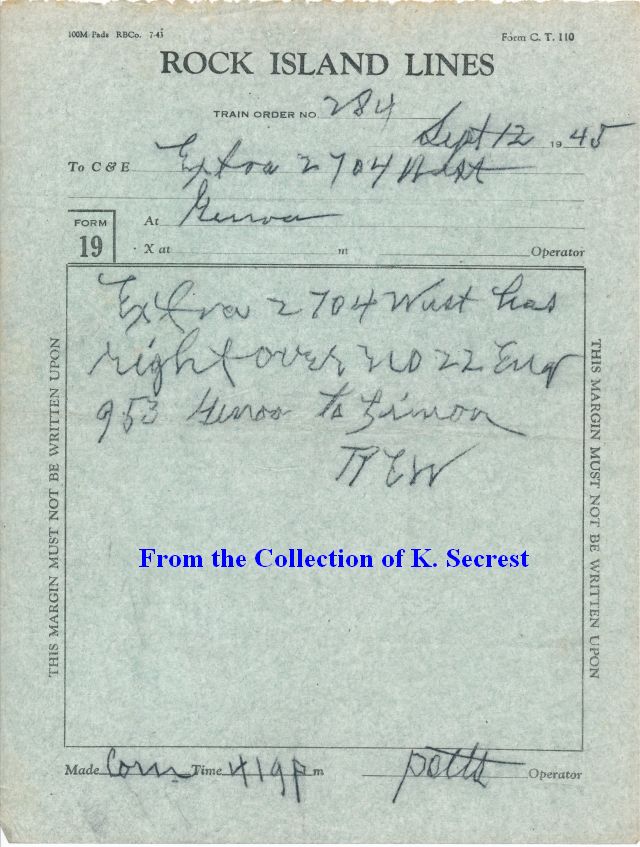 100M Pads RBCo. 7-43 Form C. T. 110
ROCK ISLAND LINES
TRAIN ORDER NO. 284
Sept 12 1945
To C & E Extra 2704 West
At Genoa
FORM
19
X at m Operator
Extra 2704 West has
right over No 22 Eng
953 Genoa to Limon
REW
From the Collection of K. Secrest
THIS MARGIN MUST NOT BE WRITTEN UPON
THIS MARGIN MUST NOT BE WRITTEN UPON
Made Com Time 419 p m Operator